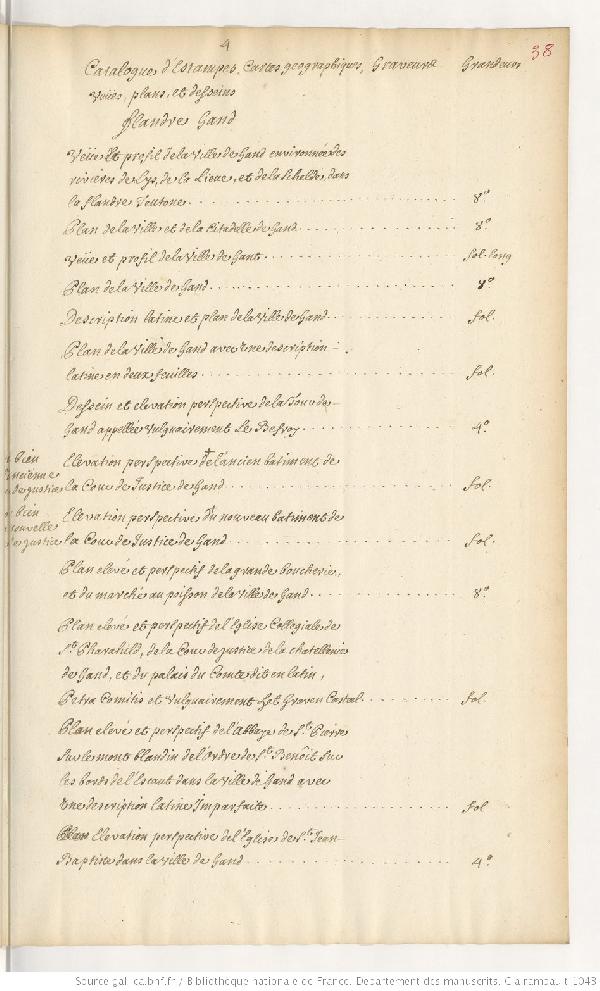 4
38
Catalogue d'Estampes, Cartes geographiques, Graveures Grandeurs
veües, plans, et desseins
flandre Gand
Veüe Et profil de la Ville de Gand environnée des
rivieres de Lys, de la Lieue, et de la Schelde, dans
la flandre Teutone 8°
Plan de la Ville et de la Citadelle de Gand 8°
Veüe et profil de la Ville de Gant fol. long
Plan de la Ville de Gand 8°
Description latine et plan de la Ville de Gand fol.
Plan de la Ville de Gand avec une description
latine en deux feuilles fol.
Dessein et elevation perspective de la Tour de
Gand appellée Vulguairement Le Beffroy 4°
bien
ancienne
de justice
Elevation perspective de l'ancien batiment de
la Cour de Justice de Gand fol.
bien
nouvelle
de justice
Elevation perspective du nouveau batiment de
la Cour de Justice de Gand fol.
Plan elevé et perspectif de la grande boucherie,
et du marché au poisson de la Ville de Gand 8°
Plan elevé et perspectif de l'Eglise Collegiale de
Ste Pharahild, de la Cour de justice de la chatellenie
de Gand, et du palais du Comte dit en latin,
Petra Comitis et vulguairement Het Graven Casteel fol.
Plan elevé et perspectif de l'Abbaye de St. Pierre
sur le mont blandin de l'Ordre de St. Benoit sur
les bords de l'Escaut dans la Ville de Gand avec
une description latine Imparfaite fol
Elevation perspective de l'Eglise de St. Jean
Baptiste dans la Ville de Gand 4°
Source gallica.bnf.fr / Bibliothèque nationale de France. Département des manuscrits. Clairambault 1048